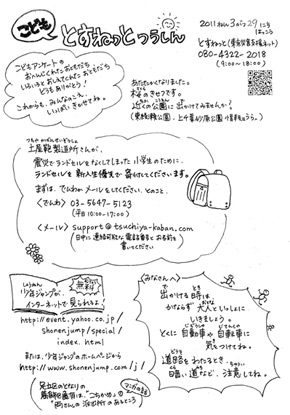 こども とすねっとつうしん
2011ねん3がつ29にち
はっこう
とすねっと(東京災害支援ネット)
080-4322-2018
(9:00〜18:00)
こどもアンケートの
おへんじくれたおともだち
いろいろおしえてくれたおともだち
どうもありがとう!
これからも、みんなのこえ、
いっぱいきかせてね。
あたたかくなりました。
桜もさきそうです。
近くの公園に出かけてみませんか?
つちやかばんせいぞうしょ
土屋鞄製造所さんが、
震災でランドセルをなくしてしまった小学生のために、
ランドセルを新入生優先で寄付してくださいます。
まずは、でんわかメールをしてください、とのこと。
<でんわ> 03-5647-5123
(平日10:00-17:00)
<メール> support@tsuchiya-kaban.com
(日中に連絡可能な電話番号とお名前を
書いてください)
少年ジャンプが、
無料
インターネットで見られるよ!
http://event.yahoo.co.jp/
shonenjump/special/
index.html
または、少年ジャンプのホームページから
http://www.shonenjump.com/j/
足立区のとなりの
葛飾区亀有は、"こちかめ"の
両さんの派出所のあるところ
マンガの
<みなさんへ>
で出かける時は
かならず大人といっしょに
いきましょう。
とくに自動車や自転車に
気をつけてね。
道路をわたるとき、
暗い道など、注意してね。